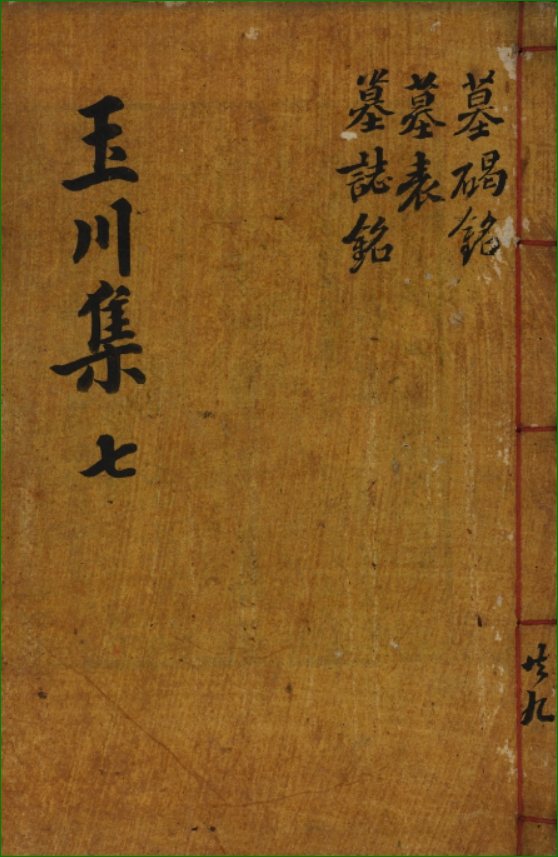 墓碣銘
墓表
墓誌銘
玉川集 七
共九